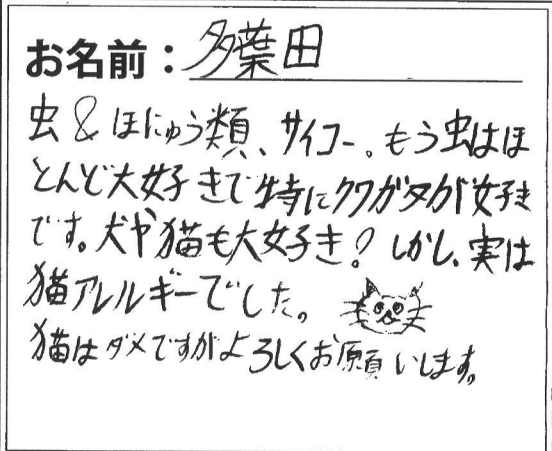 お名前：多葉田
虫&ほにゅう類、サイコー。もう虫はほ
とんど大好きで特にクワガタが好き
です。犬や猫も大好き？しかし、実は
猫アレルギーでした。
猫はダメですがよろしくお願いします。